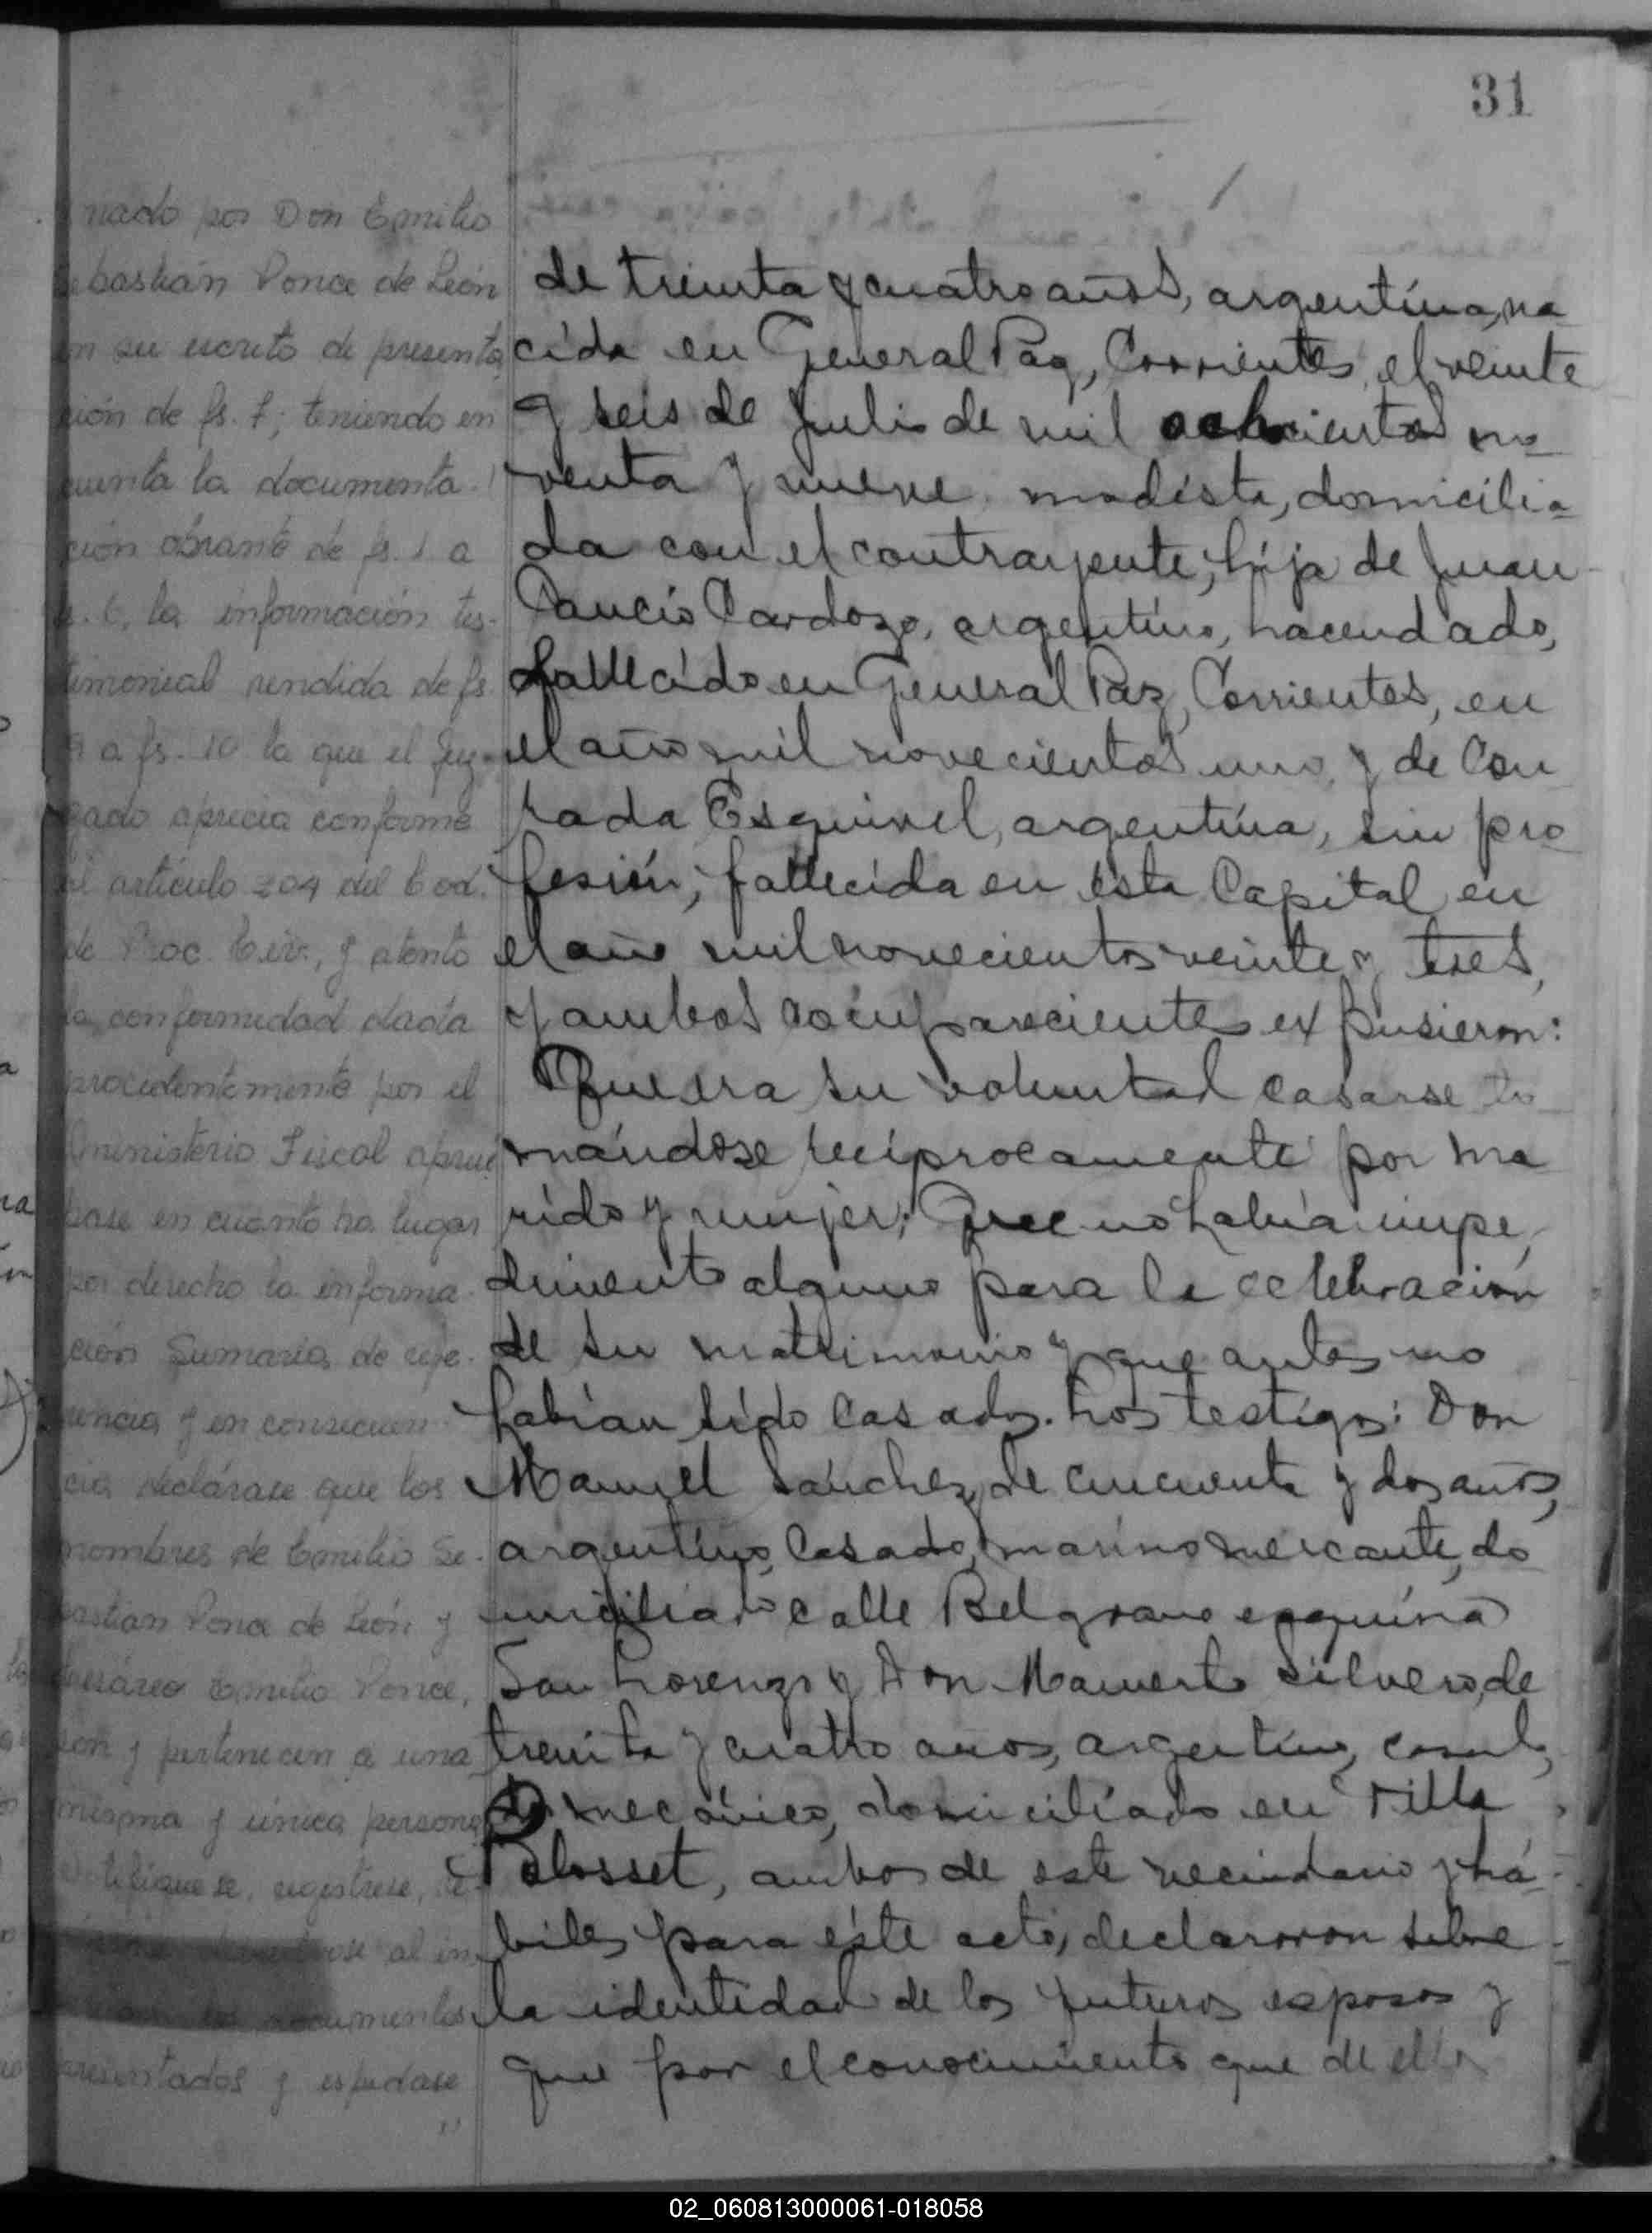 31
nado por Don Emilio
ebastián Ponce de León
en su escrito de presenta
ción de fs. 7; teniendo en
cuenta la documenta-
ción obrante de fs. 1 a
6, la información tes-
timonial rendida de fs.
9 a fs. 10 la que el Juz-
gado aprecia conforme
al artículo 204 del Cod.
de Proc. Civ., y atento
la conformidad dada
precedentemente por el
Ministerio Fiscal aprué
base en cuanto ha lugar
por derecho la informa-
ción Sumaria de refe-
rencia y en consecuen-
cia declárase que los
nombres de Emilio Se-
bastian Ponce de León y
Emilio Ponce,
son y pertenecen a una
misma y única persona
tifíquese, regístrese,
al in
documentos
presentados y expídase
de treinta y cuatro años, argentina, na
cida en General Paz, Corrientes, el veinte
y seis de Julio de mil ochocientos no
venta y nueve, modista, domicilia
da con el contrayente, hija de Juan
Cardozo, argentino, hacendado,
fallecido en General Paz, Corrientes, en
el año mil novecientos uno, y de Con
rada Esquivel, argentina, sin pro
fesión; fallecida en ésta Capital en
el año mil novecientos veinte y tres,
y ambos compareciente expusieron:
Que era su voluntad casarse to
mándose recíprocamente por ma
rido y mujer; Que no había impe,
dimento alguno para la celebración
de su matrimonio y que antes no
habían sido casados. Los testigos: Don
Manuel Sánchez, de cincuenta y dos años,
argentino, casado, marino mercante, do
miciliado calle Belgrano esquina
San Lorenzo y Don Mamerto Silvero, de
treinta y cuatro años, argentino, casado,
mecánico, domiciliado en Villa
ambos de este vecindario y há-
biles para éste acto, declararon sobre
la identidad de los futuros esposos y
que por el conocimiento que de ellos
02_060813000061-018058